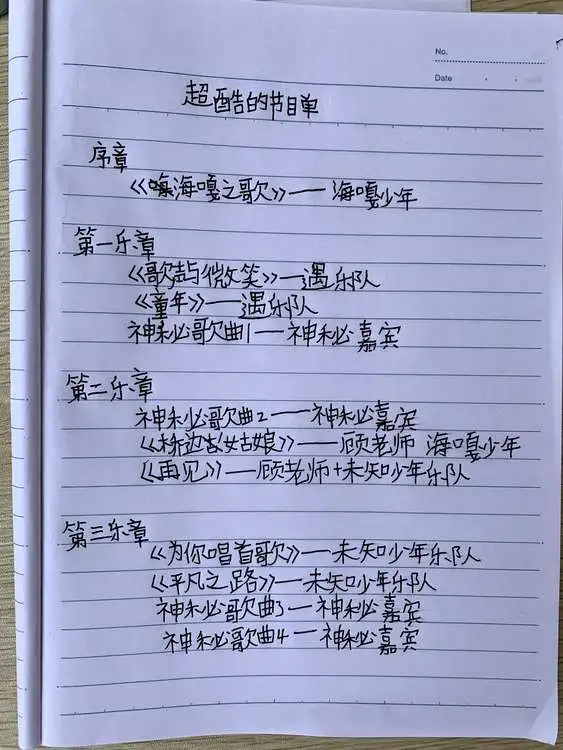 No.
Date
超酷的节目单
序章
《嗨海嘎之歌》——海嘎少年
第一乐章
《歌声与微笑》——遇乐队
《童年》——遇乐队
神秘歌曲1——神秘嘉宾
第二乐章
神秘歌曲2——神秘嘉宾
《桥边姑娘》——顾老师 海嘎少年
《再见》——顾老师+未知少年乐队
第三乐章
《为你唱首歌》——未知少年乐队
《平凡之路》——未知少年乐队
神秘歌曲3——神秘嘉宾
神秘歌曲4——神秘嘉宾